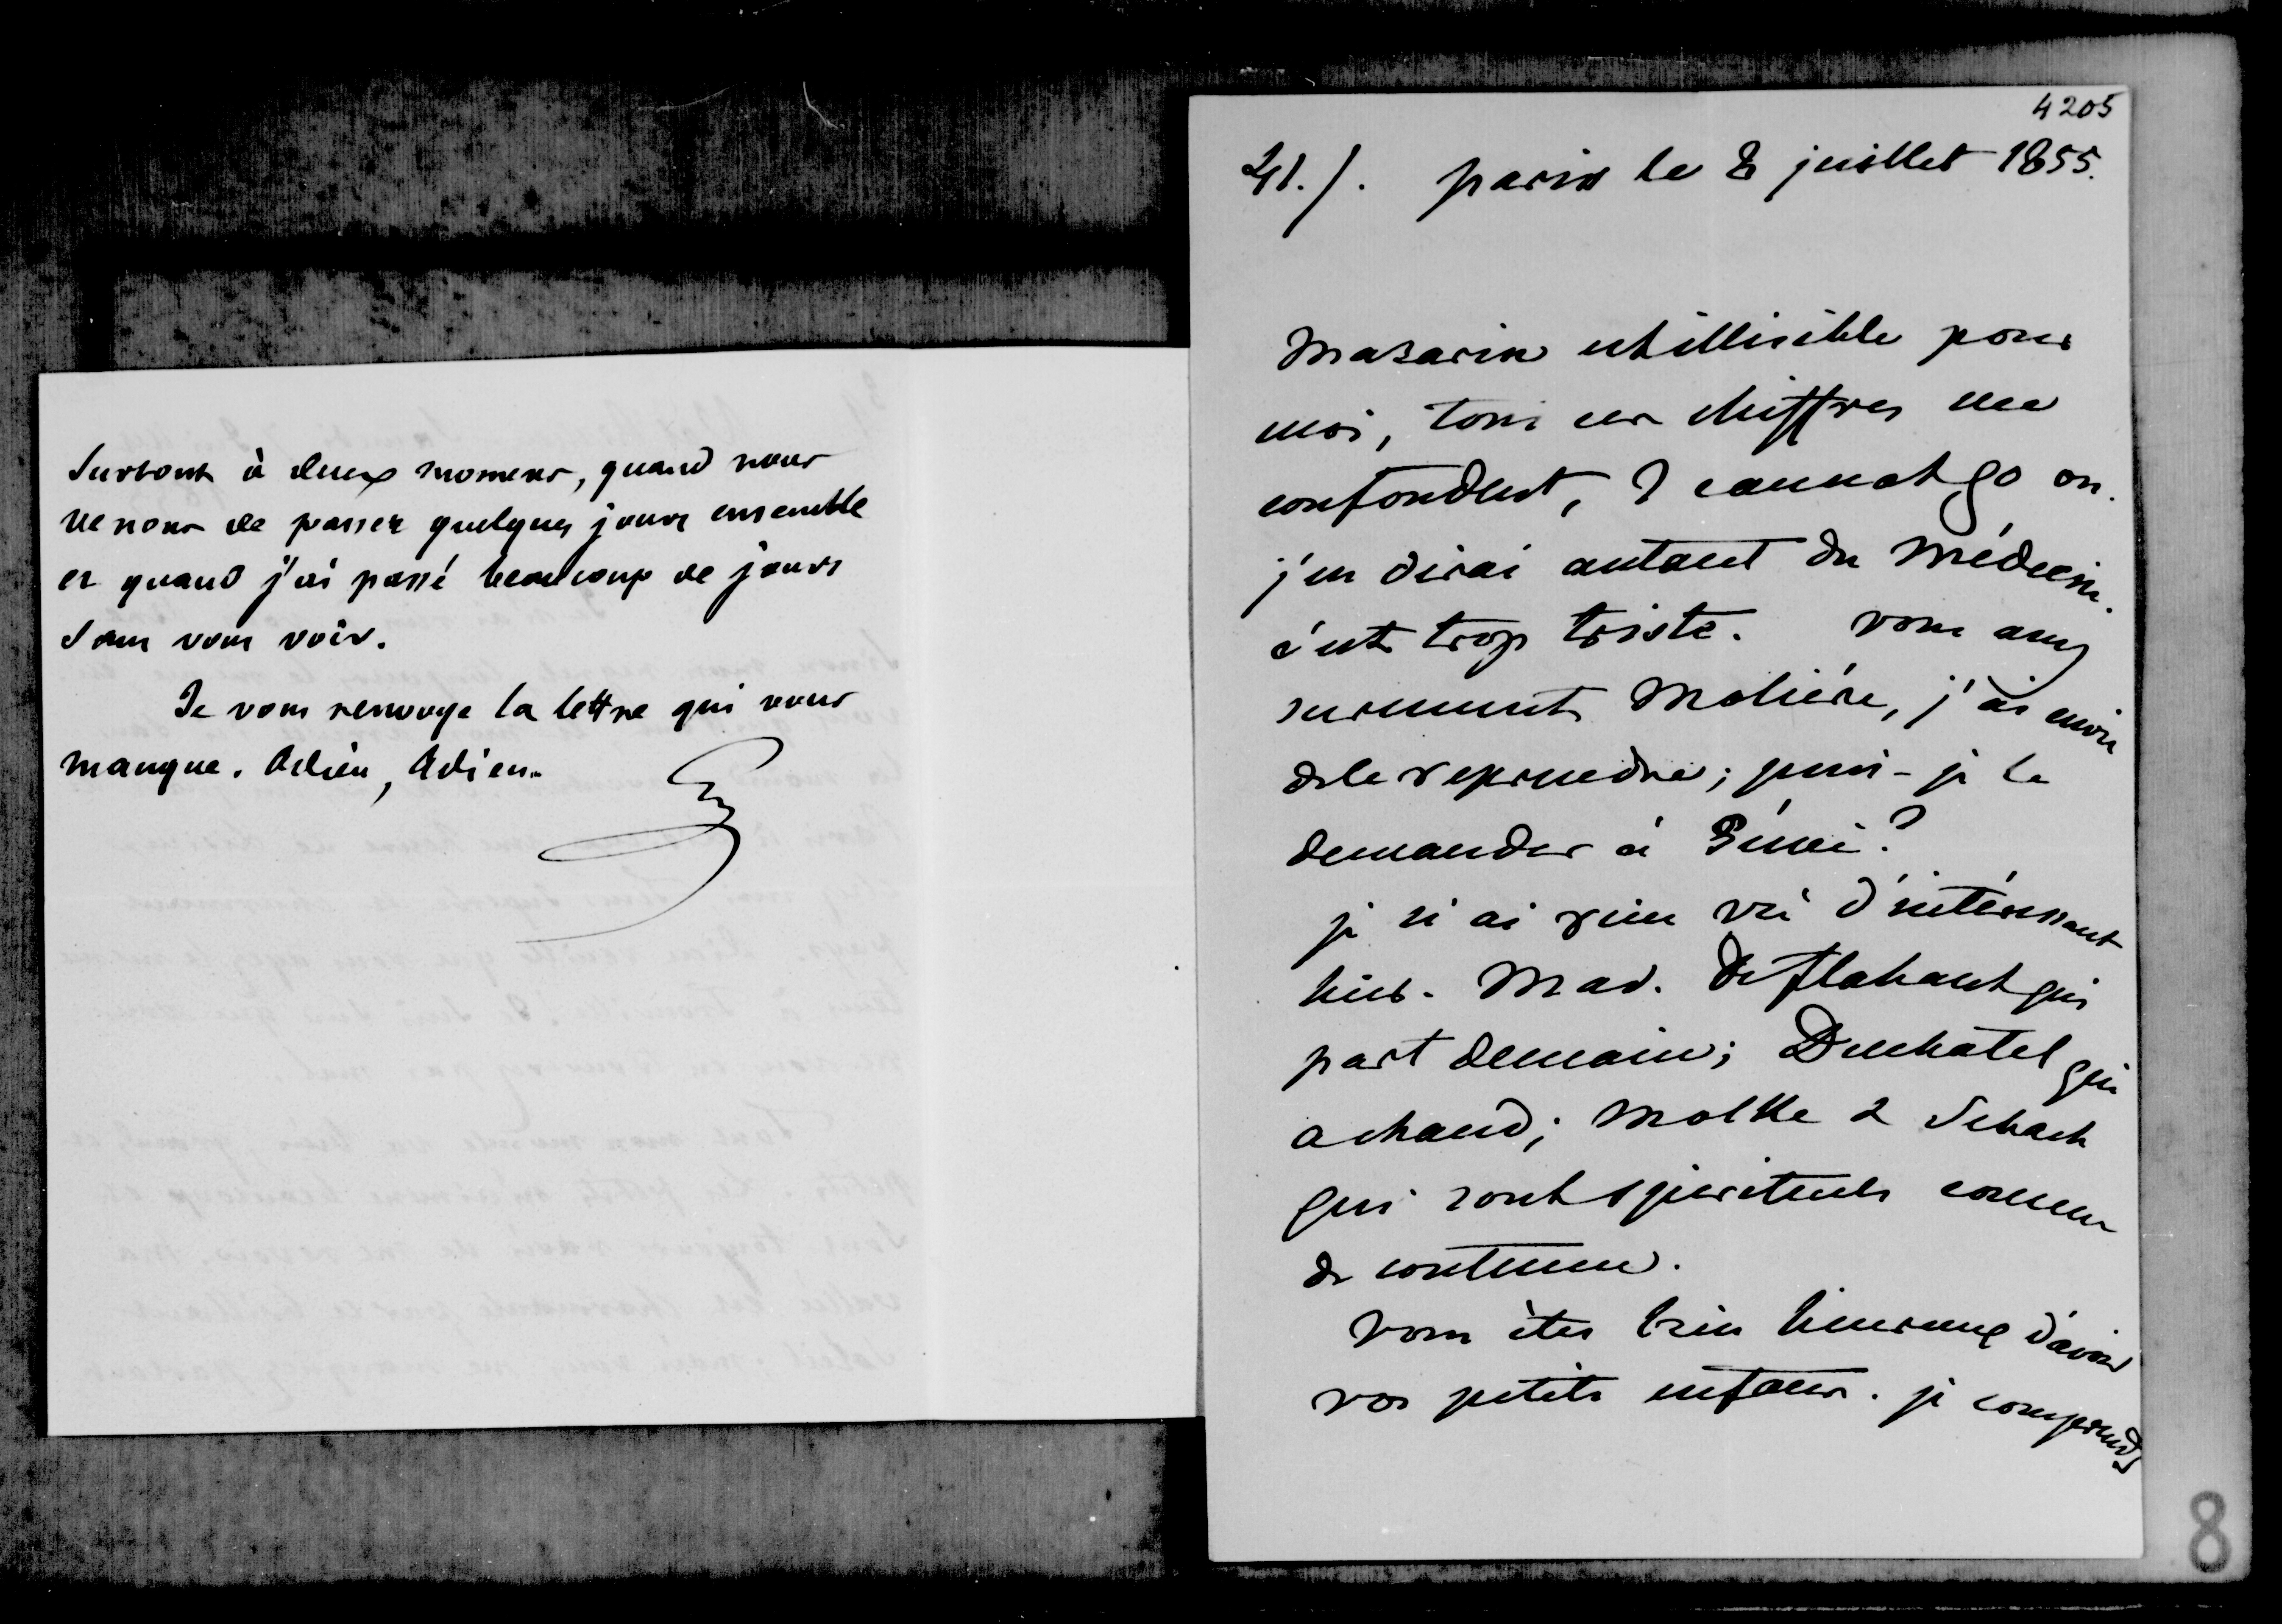 surtout à deux momens, quand nous
venons de passer quelques jours ensemble
et quand j'ai passé beaucoup de jours
sans vous voir.
Je vous renvoye la lettre qui vous
manque. Adieu, Adieu.
4205
41./. paris le 8 juillet 1855.
Mazarin est illisible pour
moi, tous ces chiffres me
confondent, I cannot go on.
j'en dirai autant du Médecin.
c'est trop triste. vous avez
surement Molière, j'ai envie
de le reprendre; puis-je le
demander à Génie?
je n'ai rien vu d'intéressant
hier. Mad. de Flahaut qui
part demain; Duchatel qui
a chaud; Molke & Schach
qui sont spirituels comme
de coutume.
Vous êtes bien heureux d'avoir
vos petits enfans. je comprends
8